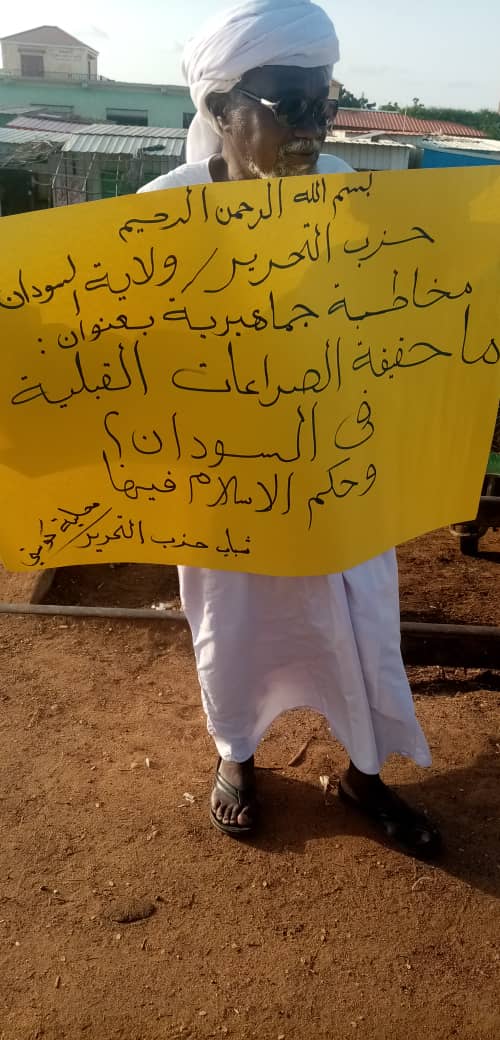 بسم الله الرحمن الرحيم
حزب التحرير/ ولاية السودان
مخاطبة جماهيرية بعنوان:
ما حقيقة الصراعات القبلية
في السودان؟
وحكم الاسلام فيها
شباب حزب التحرير/ محلية